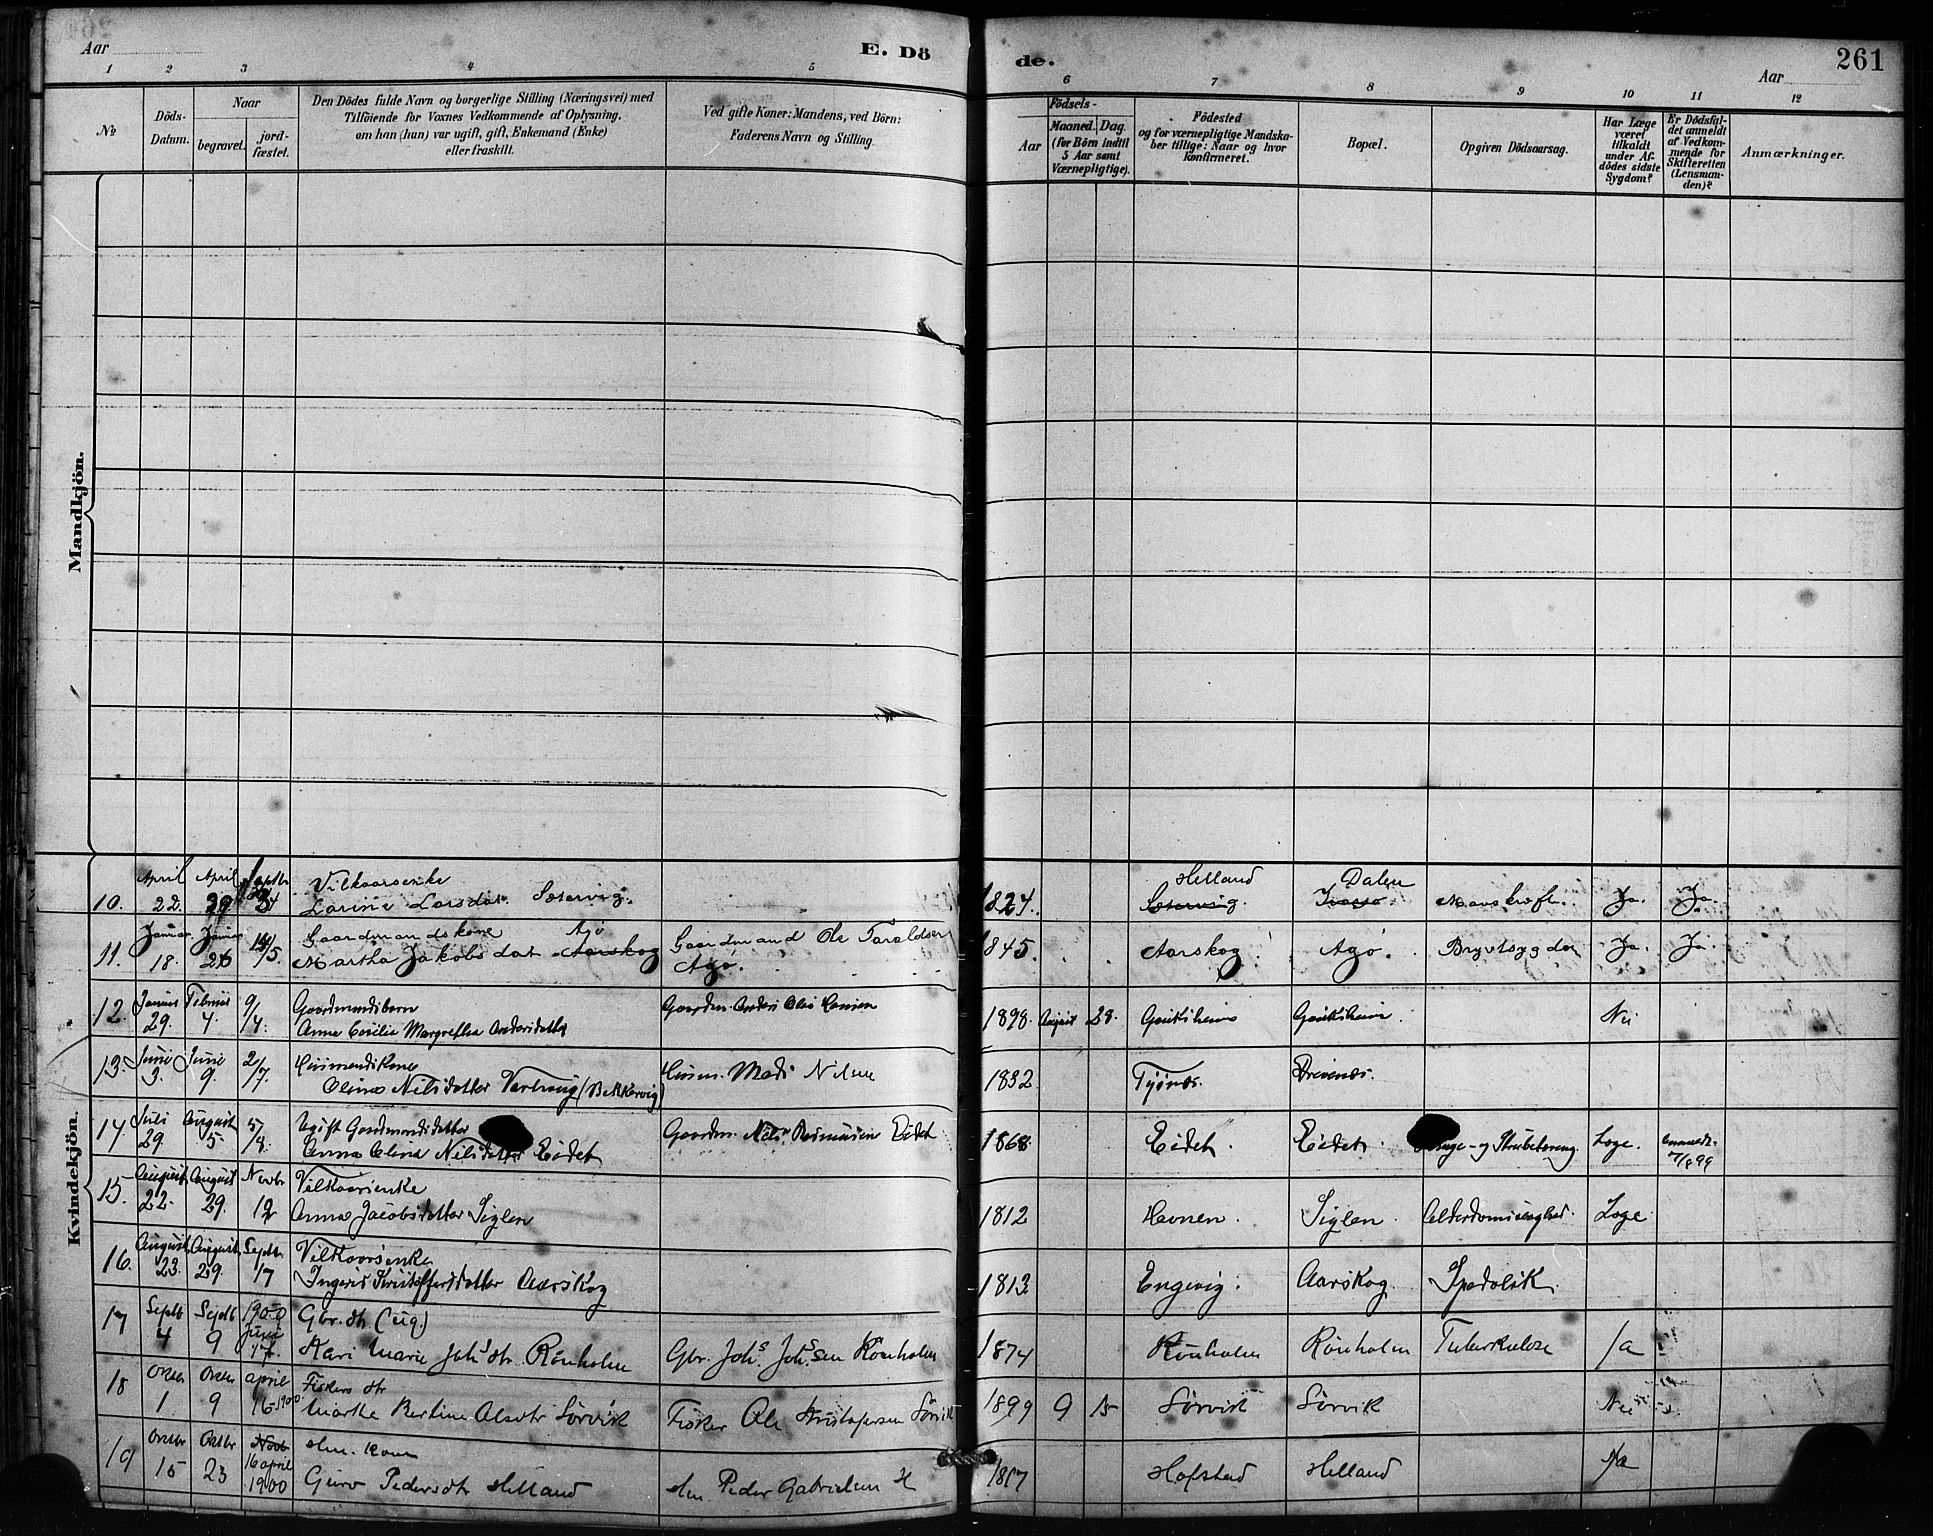 Aar
E. Dö
de.
Aar
261
1 2 3 4 5 6 7 8 9 10 11 12
№
Döds-
Datum.
Naar
begravet.
jord-
fæstet.
Den Dödes fulde Navn og borgerlige Stilling (Næringsvei) med
Tilföiende for Voxnes Vedkommende af Oplysning,
om han (hun) var ugift, gift, Enkemand (Enke)
eller fraskilt.
Ved gifte Koner: Mandens, ved Börn:
Faderens Navn og Stilling.
Födsels-
Aar
Maaned. Dag.
(for Börn indtil
5 Aar samt
Værnepligtige).
Födested
og for værnepligtige Mandska-
ber tillige: Naar og hvor
konfirmeret.
Bopæl.
Opgiven Dödsaarsag.
Har Læge
været
tilkaldt
under Af-
dödes sidste
Sygdom?
Er Dödsfal-
det anmeldt
af Vedkom-
mende for
Skifteretten
(Lensman-
den)?
Anmærkninger.
Mandkjön.
Kvindekjön.
April April Septbr Vilkaarsenke Helland Dalen
10. 22. 29 24 Larine Larsdat. Sætervig. 1824. Sætervig. Kræft. Ja. Ja.
Januar Januar Gaardmandskone Agö Gaardmand Ole Taraldsen
11. 18. 26 14/5. Martha Jakobsdat. Aarskog Agö. 1845. Aarskog Agö. Brystsygdom Ja. Ja.
Januar Februar 9/4. Gaardmandsbarn
12. 29. 4. Anna Cecilie Margrethe Andersdatter Gaardm. Anders Olai Hansen 1898. August 28. Gauksheim Gauksheim. Nei
Juni Juni 2/7. Husmandskone
13. 3. 9. Olina Nilsdatter (Bekkervig) Husm. Mads Nilsen 1832. Tysnæs.
Juli August 5/8. Ugift Gaardmandsdatter
14. 29. 5. Anna Olina Nilsdatter Eidet Gaardm. Nils Rasmussen Eidet 1868. Eidet. Eidet. og Strubetæring. Læge. anmeldt 7/8 99
August August Novbr Vilkaarsenke
15. 22. 29. 12 Anna Jacobsdatter Siglen 1812 Havnen. Siglen. Alderdomssvaghed. Læge
August August Septbr Vilkaarsenke
16. 23. 29. 17 Ingeri Kristoffersdatter Aarskog 1813 Engevig. Aarskog. Spedalsk.
Septb Septb 1900 Juni Gbr. dtr. (ug.)
17 4 9 17. Kari Marie Johs dtr. Rönholm Gbr. Johs. Johs.sen Rönholm 1874 Rönholm Rönholm Tuberkulose Ja
Octbr Octbr april Fiskers dtr
18 1. 9 16 1900 Marta Bertine Olsdtr Sörvik Fisker Ole Kristofersen Sörvik 1899 9 15 Sörvik Sörvik Nei
Octbr Octbr Novb Hm. Kone
19 15 23 16 april 1900 Guro Pedersdtr Helland Hm. Peder Gabrielsen H 1817 Hofstad Helland Ja